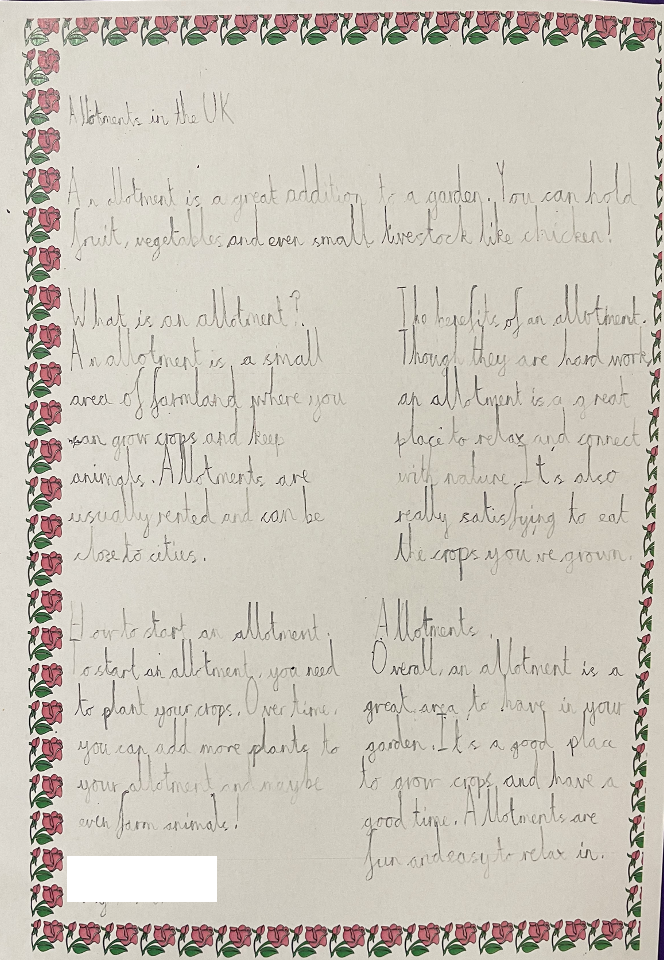 Allotments in the UK
An allotment is a great addition to a garden. You can hold
fruit, vegetables and even small livestock like chicken!
What is an allotment?
An allotment is a small
area of farmland where you
can grow crops and keep
animals. Allotments are
usually rented and can be
close to cities.
The benefits of an allotment.
Though they are hard work,
an allotment is a great
place to relax and connect
with nature. It's also
really satisfying to eat
the crops you've grown.
How to start an allotment.
To start an allotment, you need
to plant your crops. Over time,
you can add more plants to
your allotment and maybe
even farm animals!
Allotments.
Overall, an allotment is a
great area to have in your
garden. It's a good place
to grow crops and have a
good time. Allotments are
fun and easy to relax in.